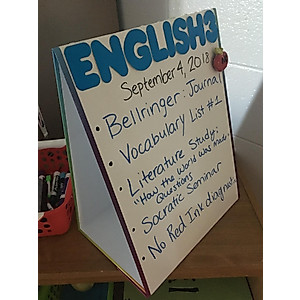 ENGLISH3
September 4, 2018
• Bellringer: Journal
• Vocabulary List #1
• Literature Study:
"How the World Was Made"
Questions
• Socratic Seminar
• No Red Ink